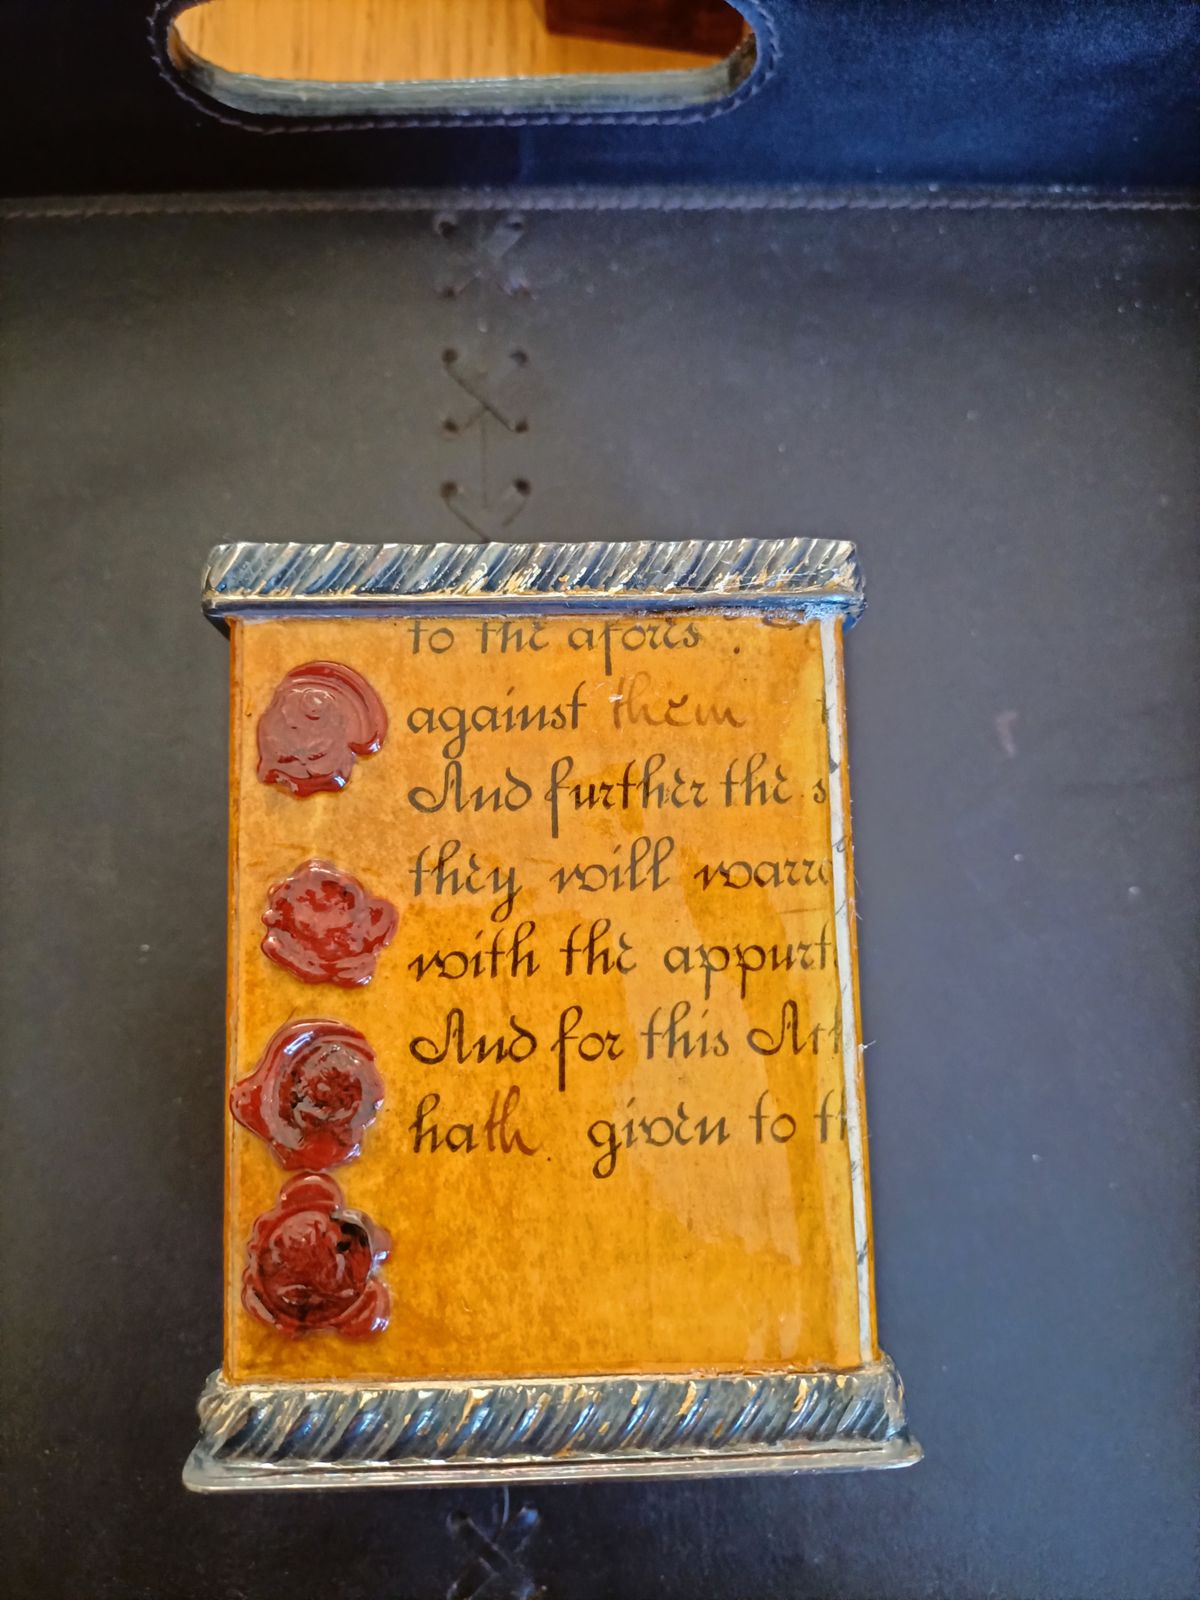 to the afores
against them
And further the s
they will warra
with the appurt
And for this Ark
hath given to th